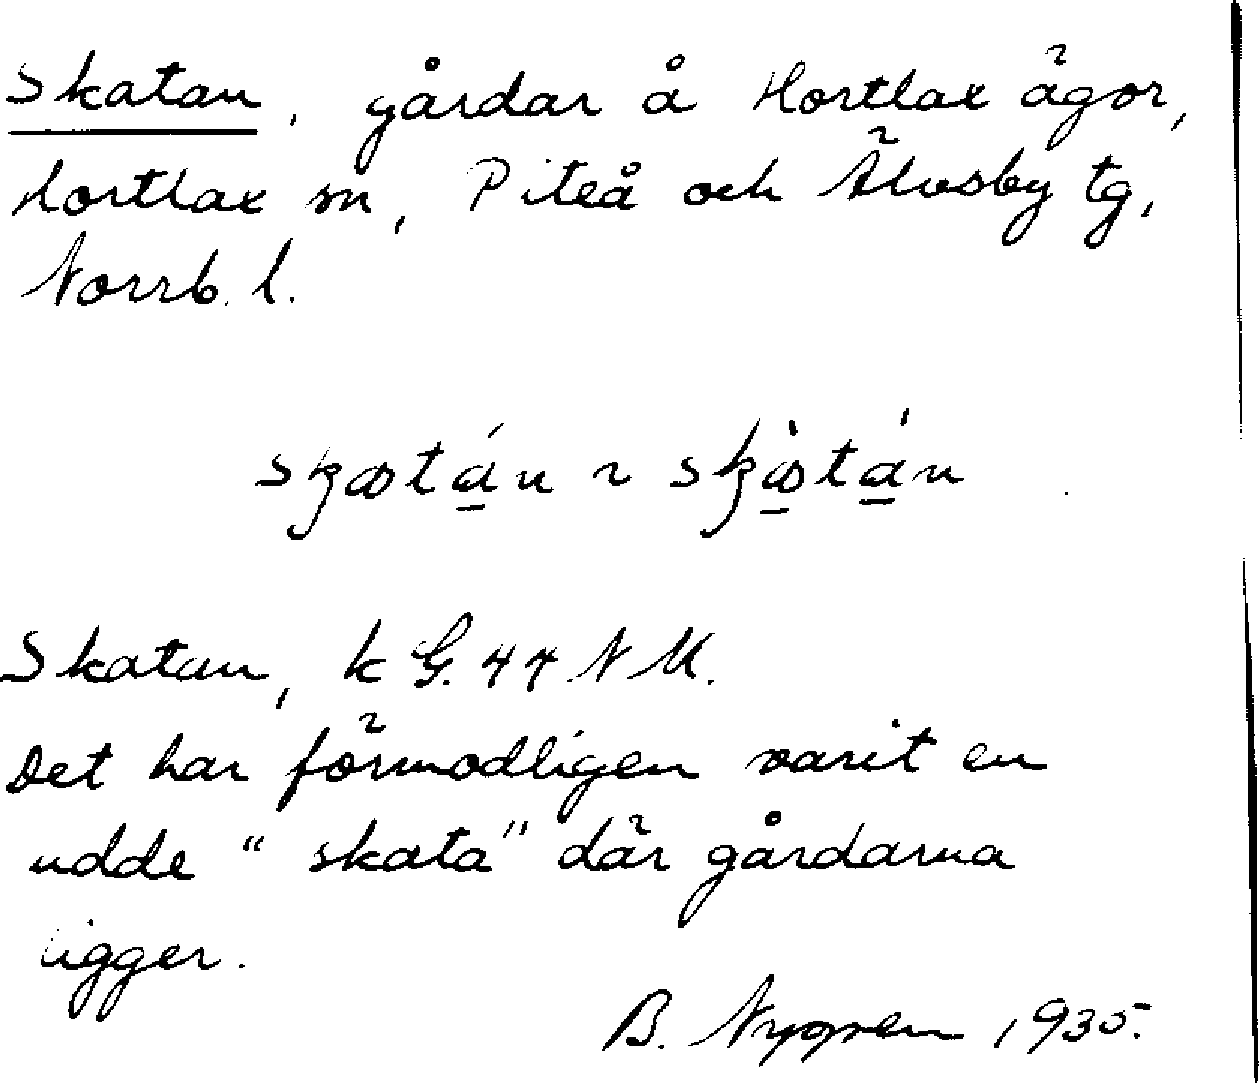 Skatan, gårdar å Hortlax ägor,
Hortlax sn, Piteå och Älvsby tg,
Norrb. l.
Skatan, k G. 44 NM.
Det har förmodligen varit en
udde "skata" där gårdarna
ligger.
B. 1935.